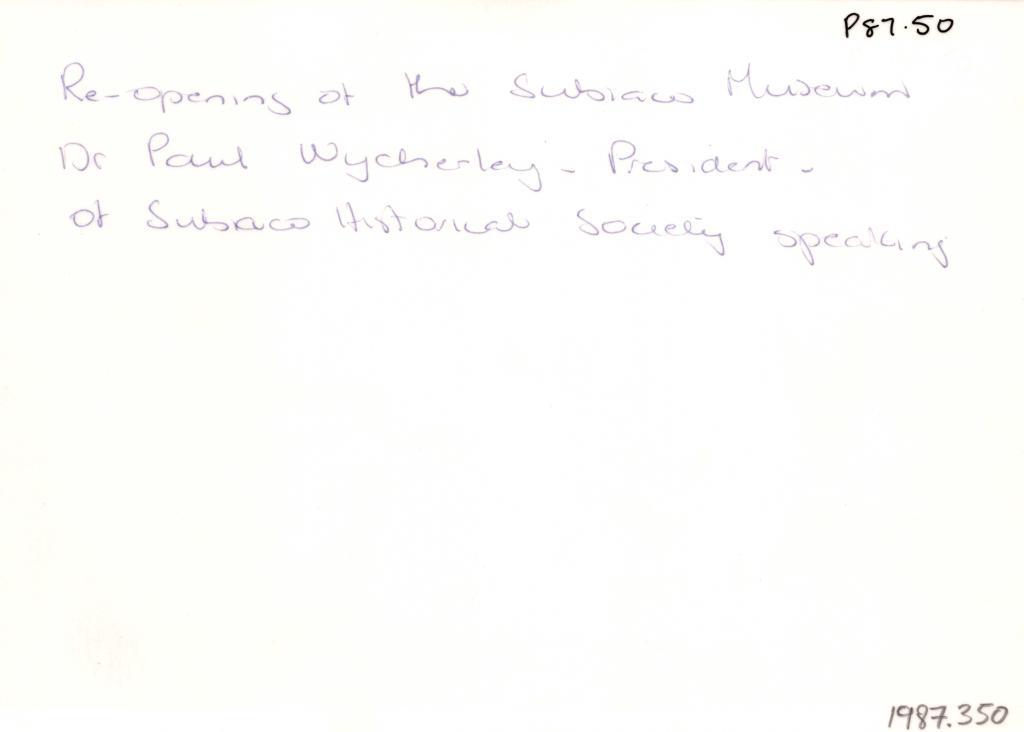 P87.50
Re-opening of the Subiaco Museum
Dr Paul Wycherley - President -
of Subiaco Historical Society speaking
1987.350